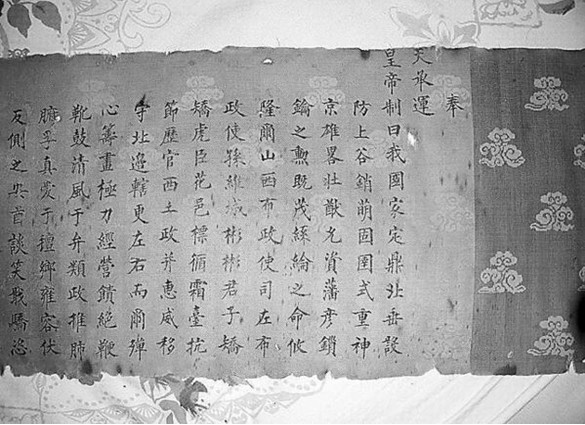 奉
天承運
皇帝制曰我國家定鼎北垂設
防上谷銷萌固圉式重神
京雄畧壯猷允資藩彥鎖
鑰之勳既茂綸之命攸
隆爾山西布政使司左布
政使孫維城彬彬君子矯
矯虎臣花邑標循霜臺抗
節歷官西土政并惠威移
守北邊轄更左右而爾殫
心籌畫極力經營絕鞭
靴鼓清風于弁類政推肺
腑孚真愛于鄉雍容伏
反側之首談笑戢驕恣